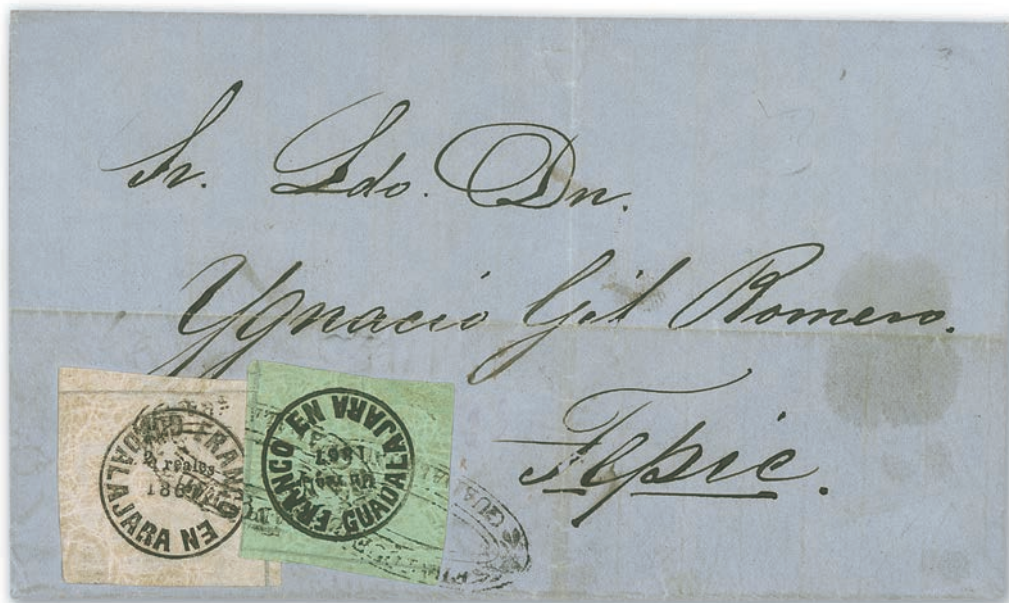 Sr. Ldo. Dn.
Ygnacio Gil Romero.
Tepic.
FRANCO EN GUADALAJARA
2 reales
186
FRANCO EN GUADALAJARA
Un real
1867